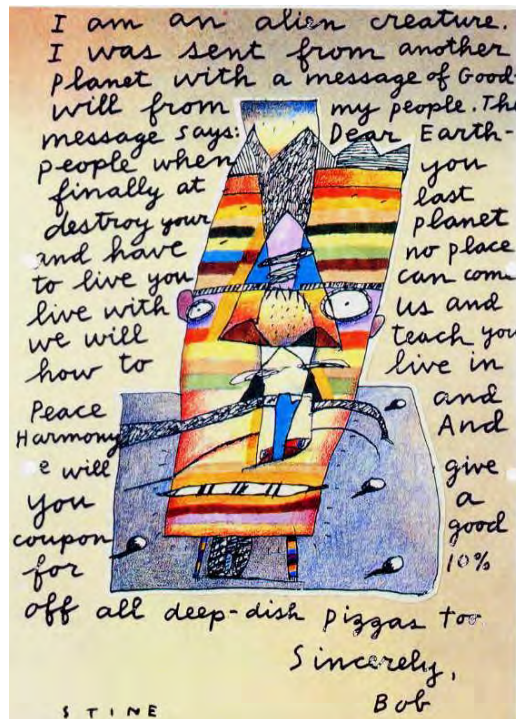 I am an alien creature.
I was sent from another
planet with a message of Good-
will from my people. The
message says: Dear Earth-
people when you
finally at last
destroy your planet
and have no place
to live you can come
live with us and
we will teach you
how to live in
Peace and
Harmony And
e will give
you a
coupon good
for 10%
off all deep-dish pizzas too
Sincerely,
Bob
STINE